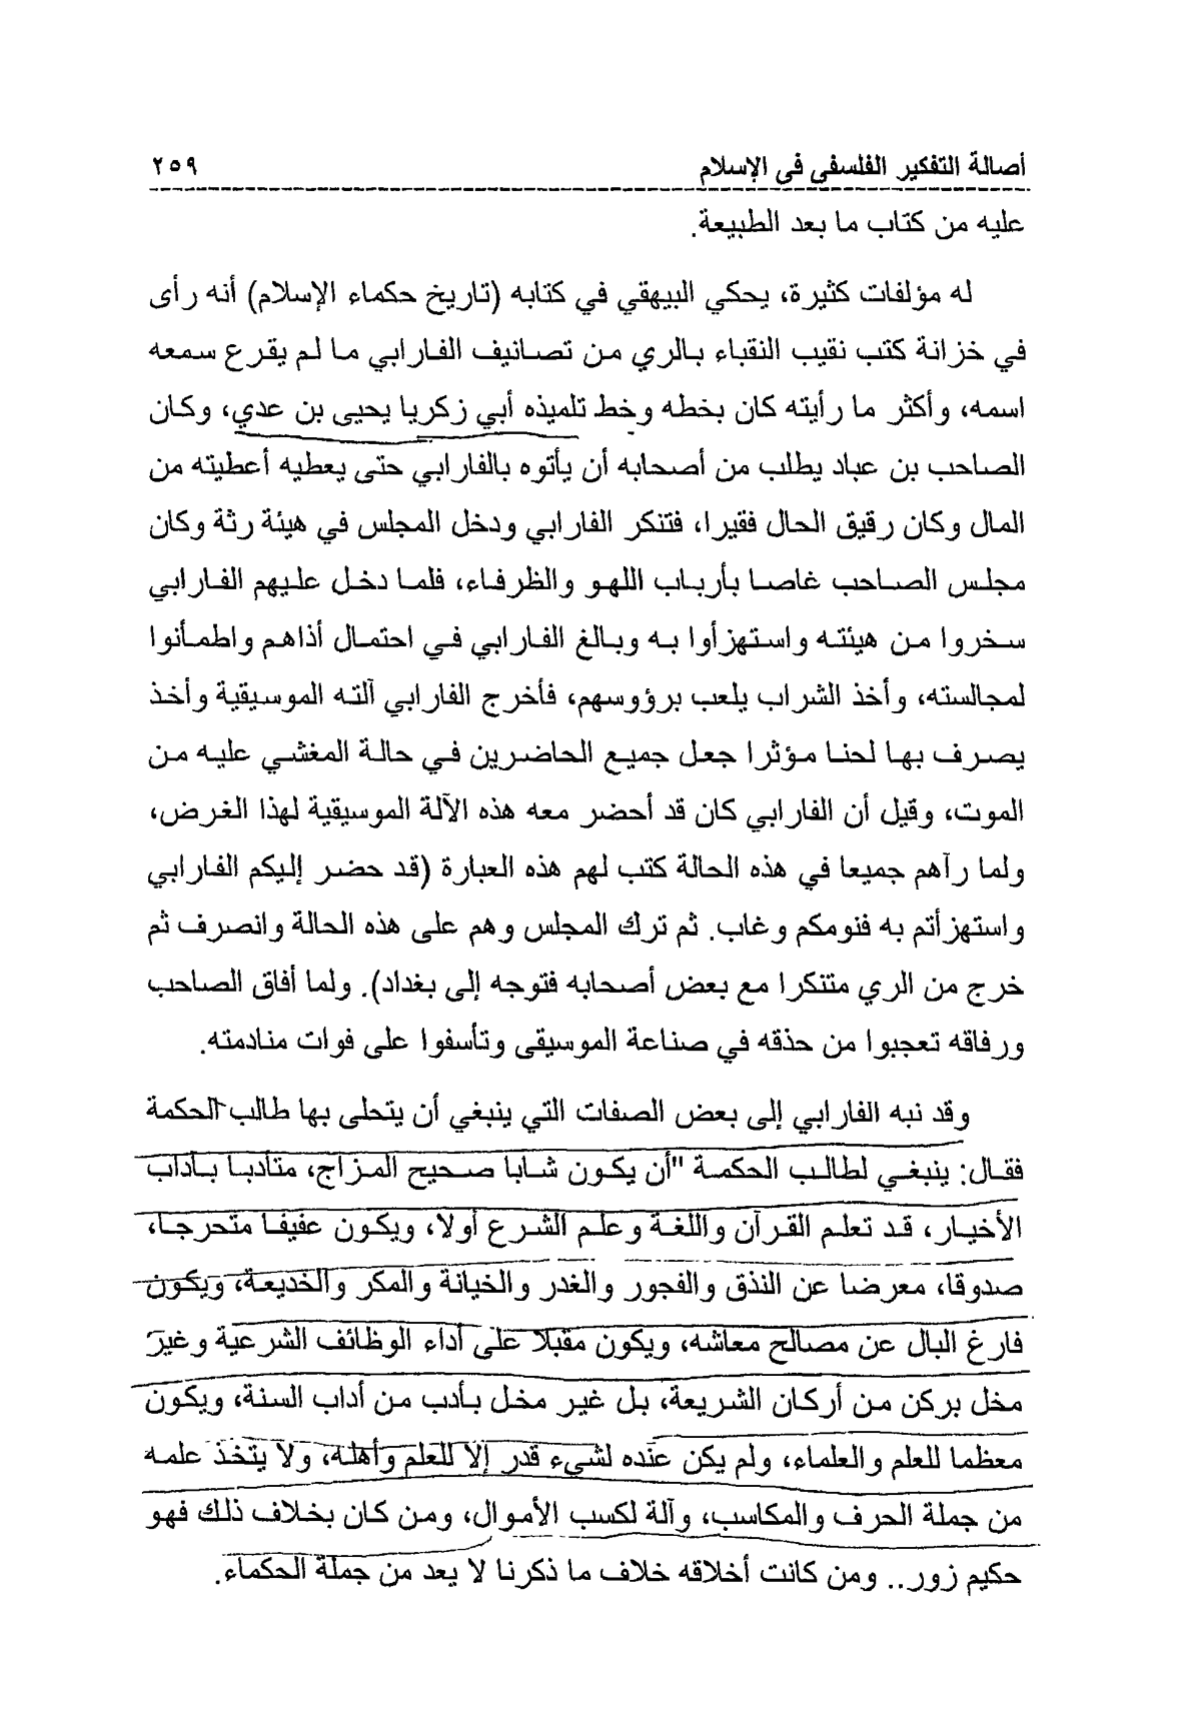 أصالة التفكير الفلسفى فى الإسلام ٢٥٩
عليه من كتاب ما بعد الطبيعة.
له مؤلفات كثيرة، يحكي البيهقي في كتابه (تاريخ حكماء الإسلام) أنه رأى
في خزانة كتب نقيب النقباء بالري من تصانيف الفارابي ما لم يقرع سمعه
اسمه، وأكثر ما رأيته كان بخطه وخط تلميذه أبي زكريا يحيى بن عدي، وكان
الصاحب بن عباد يطلب من أصحابه أن يأتوه بالفارابي حتى يعطيه أعطيته من
المال وكان رقيق الحال فقيرا، فتنكر الفارابي ودخل المجلس في هيئة رثة وكان
مجلس الصاحب غاصا بأرباب اللهو والظرفاء، فلما دخل عليهم الفارابي
سخروا من هيئته واستهزأوا به وبالغ الفارابي في احتمال أذاهم واطمأنوا
لمجالسته، وأخذ الشراب يلعب برؤوسهم، فأخرج الفارابي آلته الموسيقية وأخذ
يصرف بها لحنا مؤثرا جعل جميع الحاضرين في حالة المغشي عليه من
الموت، وقيل أن الفارابي كان قد أحضر معه هذه الآلة الموسيقية لهذا الغرض،
ولما رآهم جميعا في هذه الحالة كتب لهم هذه العبارة (قد حضر إليكم الفارابي
واستهزأتم به فنومكم وغاب. ثم ترك المجلس وهم على هذه الحالة وانصرف ثم
خرج من الري متنكرا مع بعض أصحابه فتوجه إلى بغداد). ولما أفاق الصاحب
ورفاقه تعجبوا من حذقه في صناعة الموسيقى وتأسفوا على فوات منادمته.
وقد نبه الفارابي إلى بعض الصفات التي ينبغي أن يتحلى بها طالب الحكمة
فقال: ينبغي لطالب الحكمة "أن يكون شابا صحيح المزاج، متأدبا بآداب
الأخيار، قد تعلم القرآن واللغة وعلم الشرع أولا، ويكون عفيفا متحرجا،
صدوقا، معرضا عن النذق والفجور والغدر والخيانة والمكر والخديعة، ويكون
فارغ البال عن مصالح معاشه، ويكون مقبلا على أداء الوظائف الشرعية وغير
مخل بركن من أركان الشريعة، بل غير مخل بأدب من أداب السنة، ويكون
معظما للعلم والعلماء، ولم يكن عنده لشيء قدر إلا للعلم وأهله، ولا يتخذ علمه
من جملة الحرف والمكاسب، وآلة لكسب الأموال، ومن كان بخلاف ذلك فهو
حكيم زور.. ومن كانت أخلاقه خلاف ما ذكرنا لا يعد من جملة الحكماء.